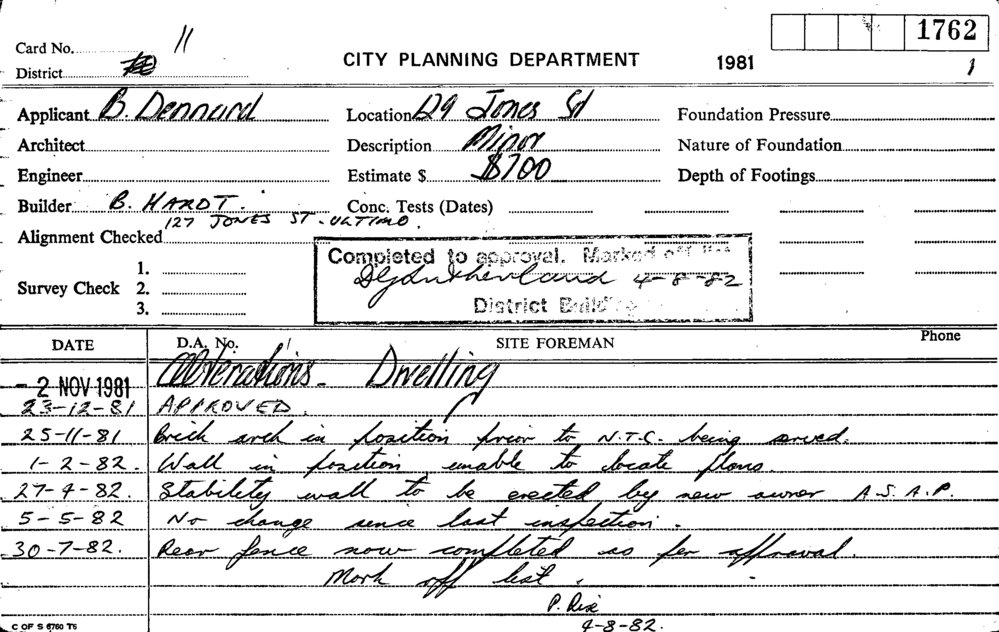 1762
Card No. 11
CITY PLANNING DEPARTMENT 1981 1
District
Applicant B. Dennard Location 129 Jones St Foundation Pressure
Architect Description Minor Nature of Foundation
Engineer Estimate $ $700 Depth of Footings
Builder B. HARDT. Conc. Tests (Dates)
127 JONES ST. ULTIMO.
Alignment Checked
Completed to approval. Marked off list
1.
DGSutherland 4-8-82
Survey Check 2.
District Building
3.
DATE D.A. No. SITE FOREMAN Phone
- 2 NOV 1981 Alterations - Dwelling
23-12-81 APPROVED.
25-11-81 Brick arch in position prior to N.T.C. being served.
1-2-82. Wall in position, unable to locate plans.
27-4-82. Stability wall to be erected by new owner A.S.A.P.
5-5-82 No change since last inspection.
30-7-82. Rear fence now completed as per approval.
Mark off list.
P. Rix
4-8-82.
C OF S 6760 T5